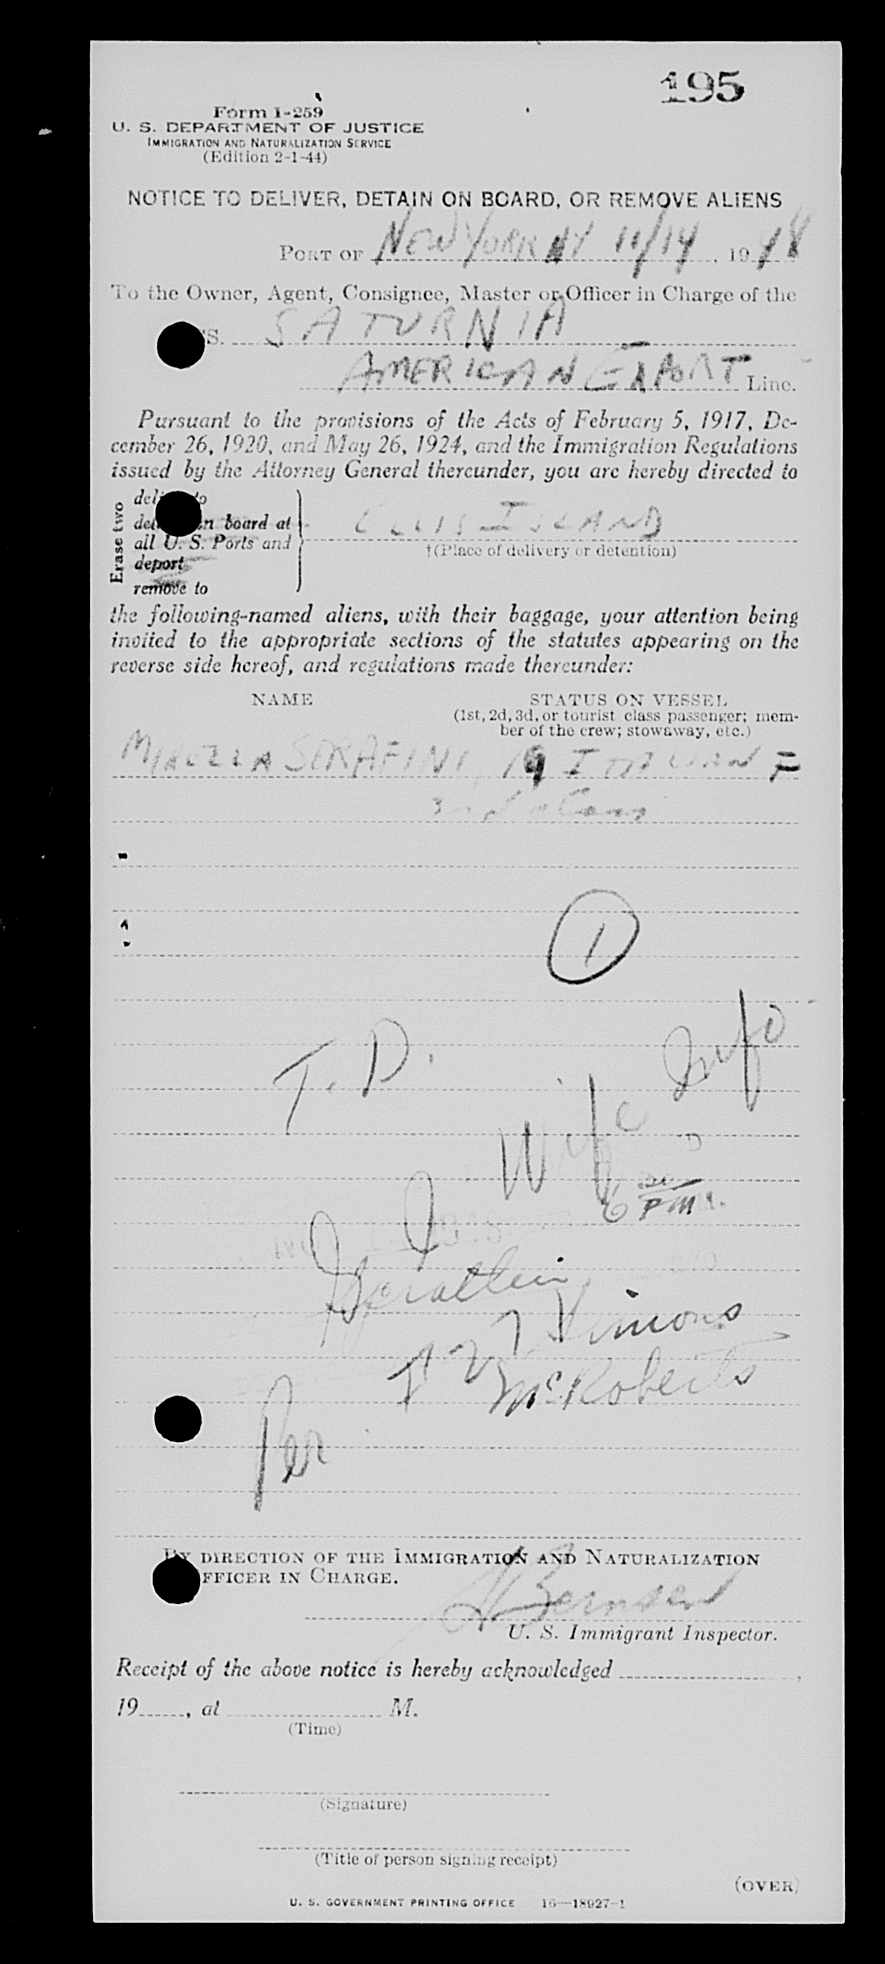 195
Form I-259
U. S. DEPARTMENT OF JUSTICE
IMMIGRATION AND NATURALIZATION SERVICE
(Edition 2-1-44)
NOTICE TO DELIVER, DETAIN ON BOARD, OR REMOVE ALIENS
PORT OF NEW YORK NY 11/14, 1948
To the Owner, Agent, Consignee, Master or Officer in Charge of the
SS. SATURNIA
AMERICAN EXPORT Line.
Pursuant to the provisions of the Acts of February 5, 1917, De-
cember 26, 1920, and May 26, 1924, and the Immigration Regulations
issued by the Attorney General thereunder, you are hereby directed to
Erase two
deliver to
detain on board at
all U. S. Ports and
deport
remove to
ELLIS ISLAND
†(Place of delivery or detention)
the following-named aliens, with their baggage, your attention being
invited to the appropriate sections of the statutes appearing on the
reverse side hereof, and regulations made thereunder:
NAME STATUS ON VESSEL
(1st, 2d, 3d, or tourist class passenger; mem-
ber of the crew; stowaway, etc.)
SERAFINI, 19 ITALIAN F
class
1
T. D.
Wife Info
6
PM
Simons
McRoberts
Per
BY DIRECTION OF THE IMMIGRATION AND NATURALIZATION
OFFICER IN CHARGE.
U. S. Immigrant Inspector.
Receipt of the above notice is hereby acknowledged ,
19 , at M.
(Time)
(Signature)
(Title of person signing receipt)
(OVER)
U. S. GOVERNMENT PRINTING OFFICE 16—18927-1